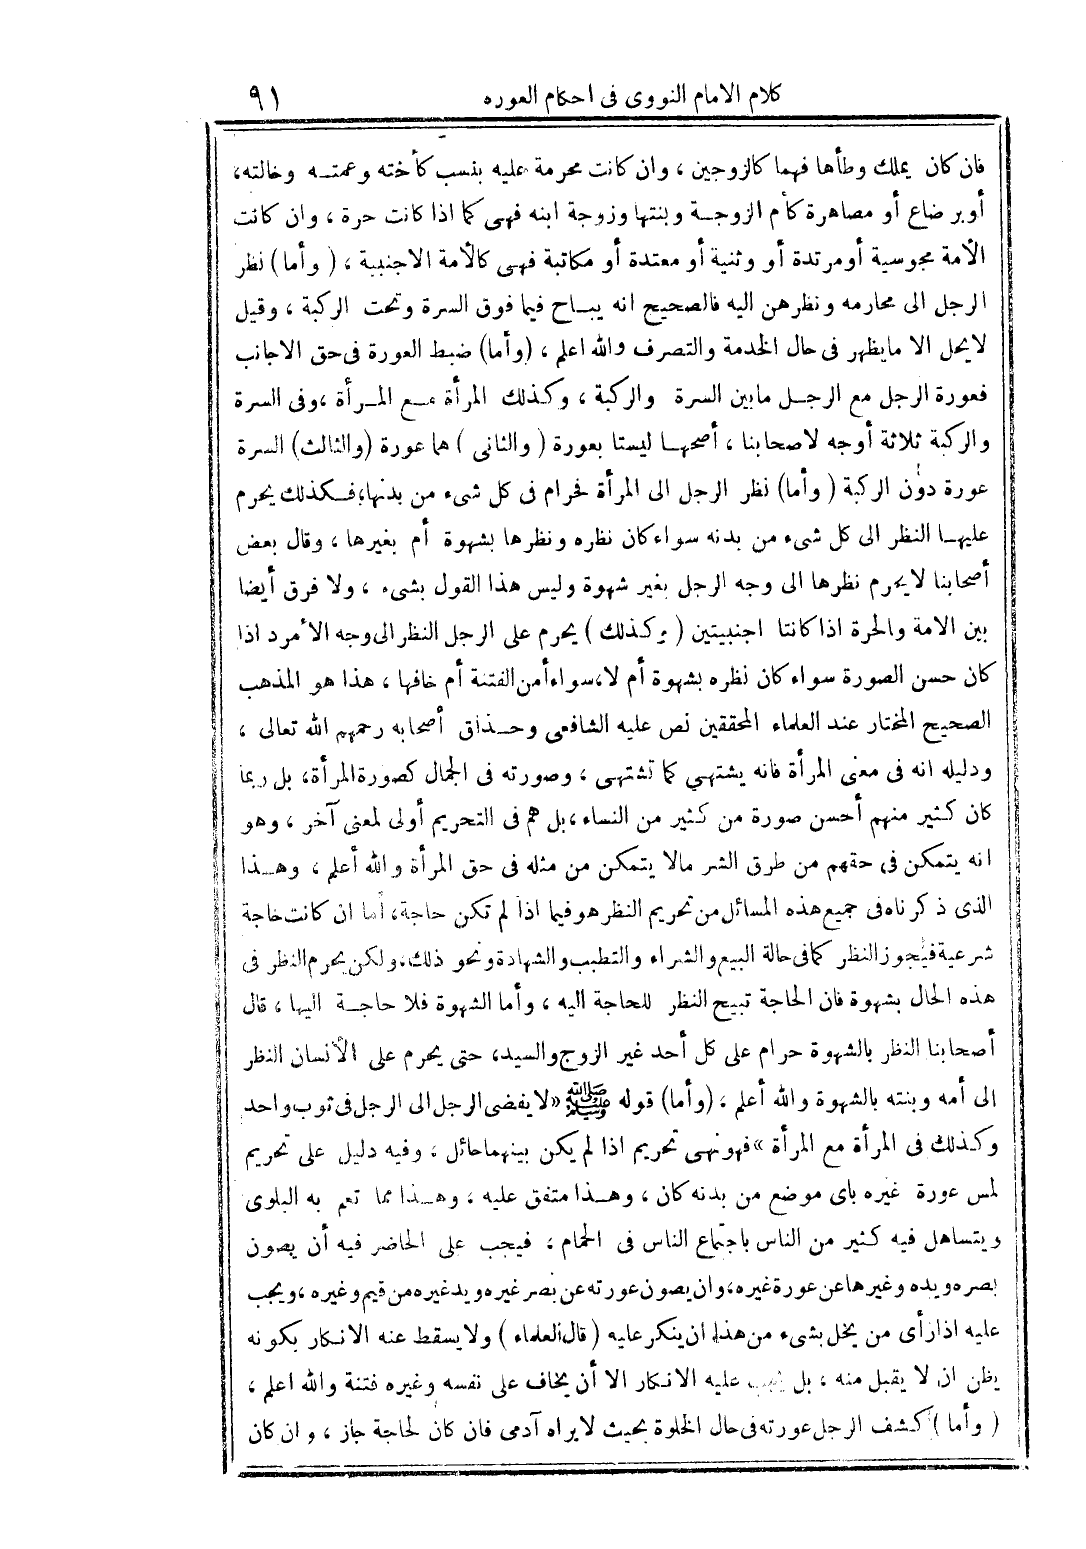 كلام الامام النووى فى احكام العوره ٩١
فان كان يملك وطأها فهما كالزوجين ، وان كانت محرمة عليه بنسب كأخته وعمتــه وخالته،
أوبر ضاع أو مصاهرة كأم الزوجــة وبنتها وزوجة ابنه فهى كما اذا كانت حرة ، وان كانت
الأمة مجوسية أومرتدة أو وثنية أو معتدة أو مكاتبة فهى كالأمة الاجنبية ، ( وأما ) نظر
الرجل الى محارمه ونظرهن اليه فالصحيح انه يبــاح فيما فوق السرة وتحت الركبة ، وقيل
لايحل الا مايظهر فى حال الخدمة والتصرف والله اعلم ، (وأما) ضبط العورة فى حق الاجانب
فعورة الرجل مع الرجــل مابين السرة والركبة ، وكذلك المرأة مــع المــرأة ،وفى السرة
والركبة ثلاثة أوجه لاصحابنا ، أصحهــا ليستا بعورة ( والثانى ) هما عورة (والثالث) السرة
عورة دون الركبة ( وأما) نظر الرجل الى المرأة فحرام فى كل شىء من بدنها؛فــكذلك يحرم
عليهــا النظر الى كل شىء من بدنه سواءكان نظره ونظرها بشهوة أم بغيرها ، وقال بعض
أصحابنا لايحرم نظرها الى وجه الرجل بغير شهوة وليس هذا القول بشىء ، ولا فرق أيضا
بين الامة والحرة اذاكانتا اجنبيتين ( وكذلك ) يحرم على الرجل النظر الى وجه الأمرد اذا
كان حسن الصورة سواء كان نظره بشهوة أم لا،سواءأمن الفتنة أم خافها ، هذا هو المذهب
الصحيح المختار عند العلماء المحققين نص عليه الشافعى وحــذاق أصحابه رحمهم الله تعالى ،
ودليله انه فى معنى المرأة فانه يشتهى كما تشتهى ، وصورته فى الجمال كصورة المرأة، بل ربما
كان كثير منهم أحسن صورة من كثير من النساء،بل هم فى التحريم أولى لمعنى آخر ، وهو
انه يتمكن فى حقهم من طرق الشر مالا يتمكن من مثله فى حق المرأة والله أعلم ، وهــذا
الذى ذكرناه فى جميع هذه المسائل من تحريم النظر هو فيما اذا لم تكن حاجة، أما ان كانت حاجة
شرعية فيجوز النظر كما فى حالة البيع والشراء والتطبب والشهادة ونحو ذلك،ولكن يحرم النظر فى
هذه الحال بشهوة فان الحاجة تبيح النظر للحاجة اليه ، وأما الشهوة فلا حاجــة اليها ، قال
أصحابنا النظر بالشهوة حرام على كل أحد غير الزوج والسيد، حتى يحرم على الأنسان النظر
الى أمه وبنته بالشهوة والله أعلم ، (وأما) قوله ﷺ «لايفضى الرجل الى الرجل فى ثوب واحد
وكذلك فى المرأة مع المرأة »فهونهى تحريم اذا لم يكن بينهما حائل ، وفيه دليل على تحريم
لمس عورة غيره باى موضع من بدنه كان ، وهــذا متفق عليه ، وهــذا مما تعم به البلوى
ويتساهل فيه كثير من الناس باجتماع الناس فى الحمام ، فيجب على الحاضر فيه أن يصون
بصره ويده وغيرها عن عورة غيره،وان يصون عورته عن بصر غيره ويد غيره من قيم وغيره ،ويجب
عليه اذارأى من يخل بشىء من هذا ان ينكر عليه ( قال العلماء ) ولا يسقط عنه الانكار بكونه
يظن ان لا يقبل منه ، بل يجب عليه الانكار الا أن يخاف على نفسه وغيره فتنة والله اعلم ،
( وأما ) كشف الرجل عورته فى حال الخلوة بحيث لايراه آدمى فان كان لحاجة جاز ، وان كان